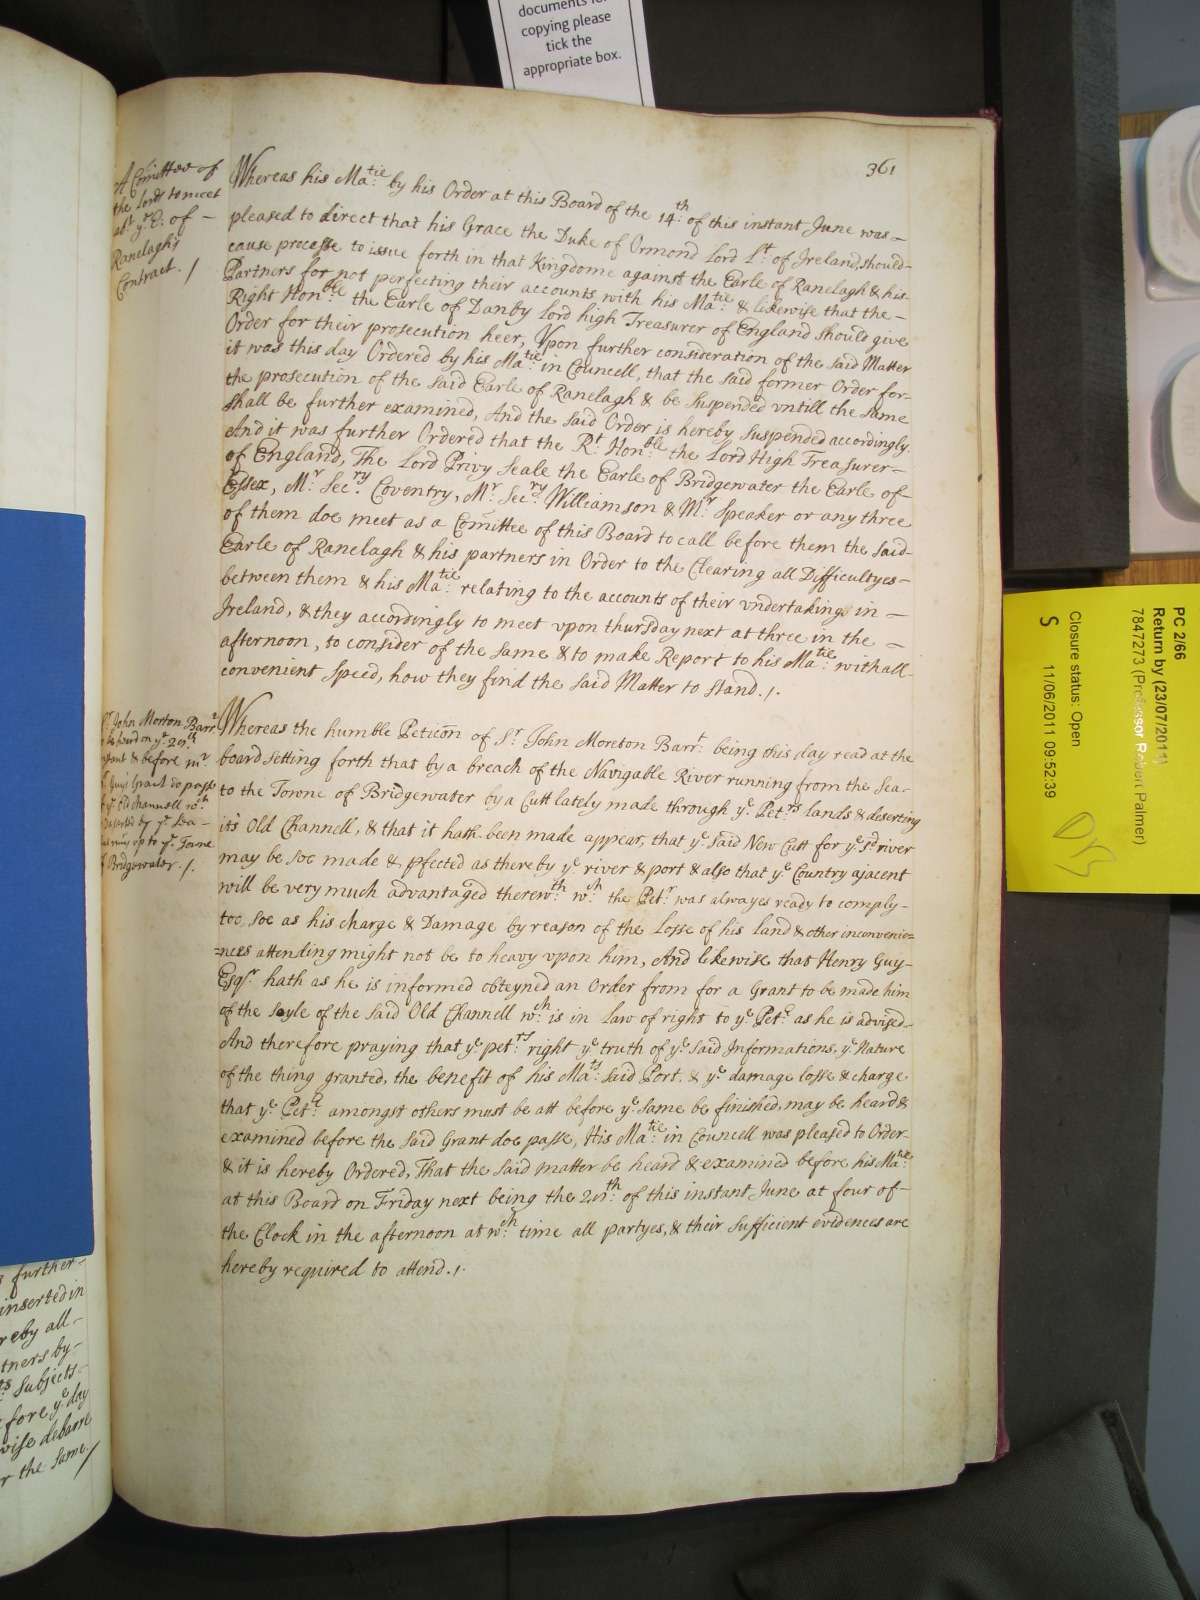 documents for
copying please
tick the
appropriate box.
361
A Com̃ittee of
the Lords to meet
abt. ye. E. of –
Ranelagh's
Contract. /
Whereas his Matie. by his Order at this Board of the 14th. of this instant June was –
pleased to direct that his Grace the Duke of Ormond Lord Lt. of Ireland, should –
cause processe to issue forth in that Kingdome against the Earle of Ranelagh & his –
Partners for not perfecting their accounts with his Matie. & likewise that the –
Right Honble. the Earle of Danby Lord high Treasurer of England should give
Order for their prosecution heer, Upon further consideration of the said Matter
it was this day Ordered by his Matie. in Councell, that the said former Order for –
the prosecution of the said Earle of Ranelagh & be Suspended vntill the same
shall be further examined, And the said Order is hereby Suspended accordingly.
And it was further Ordered that the Rt. Honble. the Lord High Treasurer –
of England, The Lord Privy Seale the Earle of Bridgewater the Earle of –
Essex, Mr. Secry. Coventry, Mr. Secry. Williamson & Mr. Speaker or any three
of them doe meet as a Com̃ittee of this Board to call before them the said –
Earle of Ranelagh & his partners in Order to the Clearing all Difficultyes –
between them & his Matie. relating to the accounts of their vndertakings in –
Ireland, & they accordingly to meet vpon thursday next at three in the –
afternoon, to consider of the same & to make Report to his Matie. with all –
convenient Speed, how they find the said Matter to stand. /.
Sr. John Morton Barrt.
to be heard on ye.
instant & before Mr.
Guys Grant do passe
of ye. Old Channell wch.
deserted by ye. Sea –
running up to ye. Towne
of Bridgewater. /.
Whereas the humble Petic̃on of Sr. John Moreton Barrt. being this day read at the
board setting forth that by a breach of the Navigable River running from the Sea –
to the Towne of Bridgewater by a Cutt lately made through ye. Petrs. lands & deserting
it's Old Channell, & that it hath been made appear, that ye. said New Cutt for ye. sd. river
may be soe made & pfected as thereby ye. river & port & also that ye. Country ajacent
will be very much advantaged therewth. wch. the Petr. was alwayes ready to comply –
too soe as his charge & Damage by reason of the Losse of his land & other inconvenie=
=nces attending might not be to heavy vpon him, And likewise that Henry Guy –
Esqr. hath as he is informed obteyned an Order from for a Grant to be made him
of the soyle of the said Old Channell wch. is in Law of right to ye. Petr. as he is advised –
And therefore praying that ye. petrs. right ye. truth of ye. said Informations, ye. Nature
of the thing granted, the benefit of his Mats. said Port, & ye. damage losse & charge
that ye. Petr. amongst others must be att before ye. same be finished, may be heard &
examined before the said Grant doe passe, His Matie. in Councell was pleased to Order –
& it is hereby Ordered, That the said matter be heard & examined before his Matie.
at this Board on Friday next being the of this instant June at four of –
the Clock in the afternoon at wch. time all partyes, & their sufficient evidences are
hereby required to attend. /.
further –
inserted in
reby all –
tners by –
ts. Subjects –
fore ye. day
wise debarre
r the same. /
PC 2/66
Return by (23/07/2011)
7847273 (Professor Robert Palmer)
Closure status: Open
S 11/06/2011 09:52:39